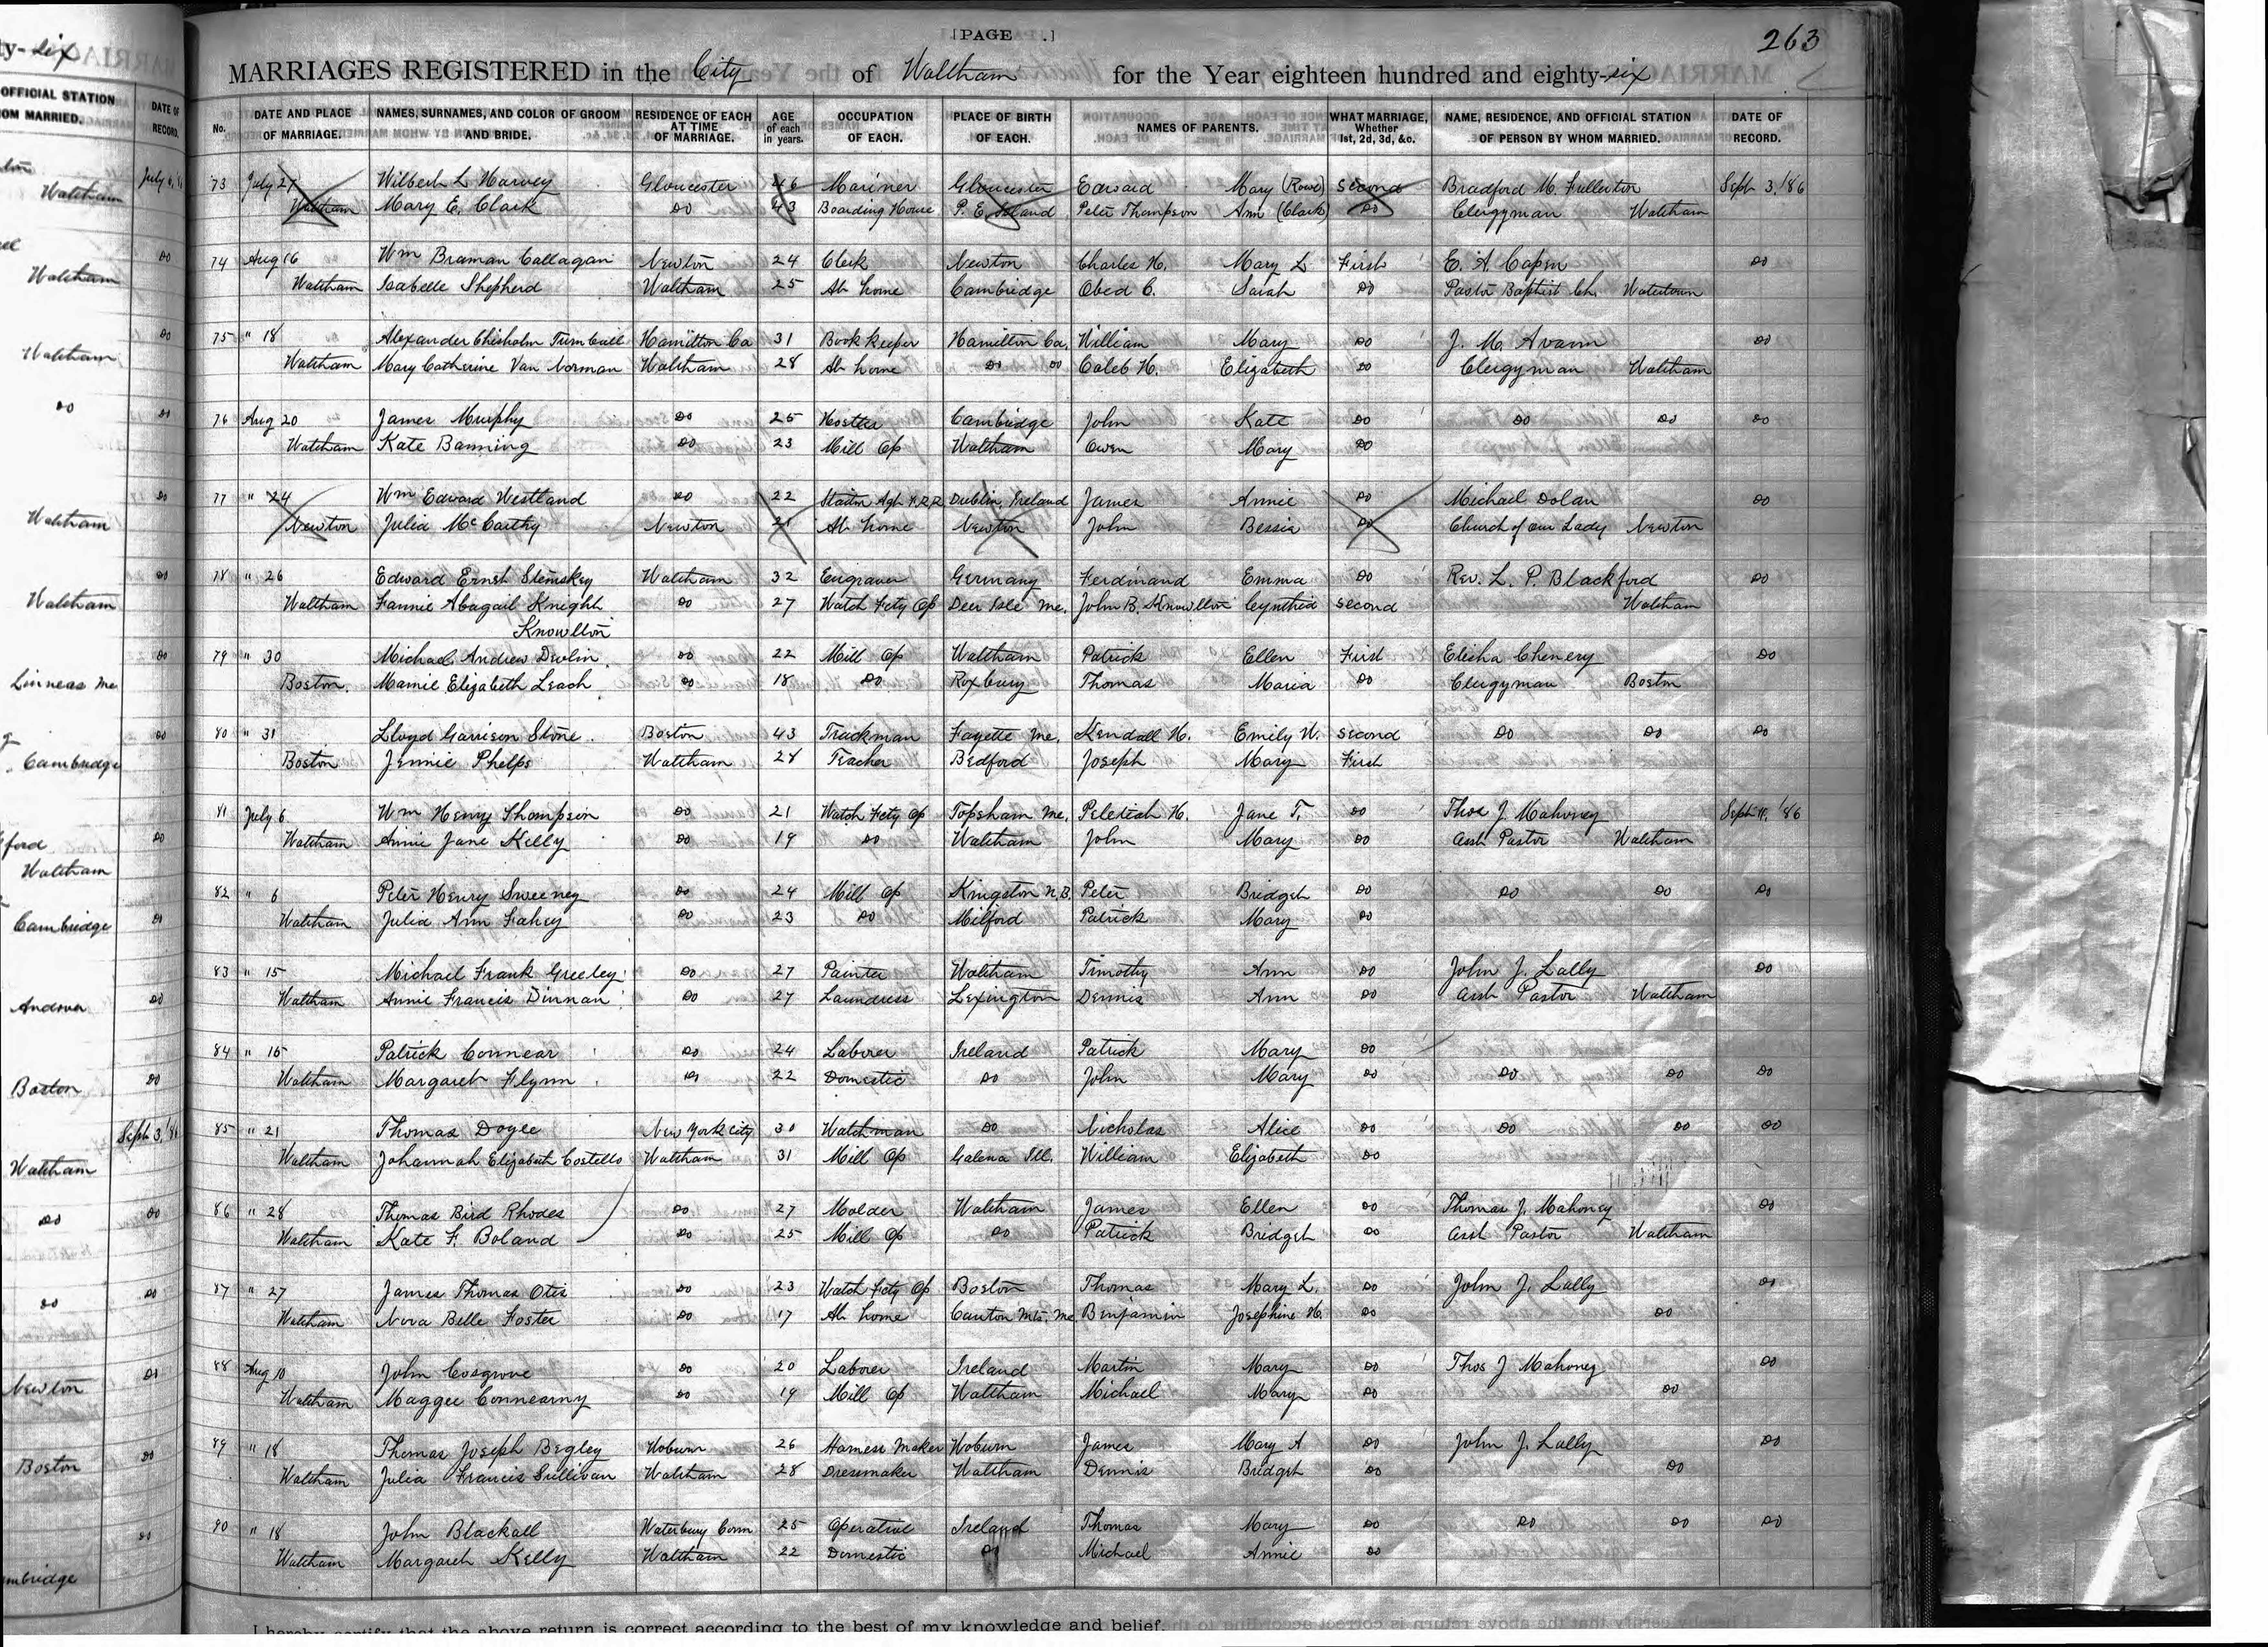 ty-six
OFFICIAL STATION
OM MARRIED.
DATE OF RECORD.
Waltham July
Waltham Do
Waltham Do
Do Do
Waltham Do
Waltham Do
Linneas Me Do
Cambridge Do
ford
Waltham Do
Cambridge Do
Andover Do
Boston Do
Sept 3, '86
Waltham
Do Do
Do Do
Newton Do
Boston Do
mbridge Do
[PAGE .] 263
MARRIAGES REGISTERED in the City of Waltham for the Year eighteen hundred and eighty-six
No. DATE AND PLACE OF MARRIAGE. NAMES, SURNAMES, AND COLOR OF GROOM AND BRIDE. RESIDENCE OF EACH AT TIME OF MARRIAGE. AGE of each in years. OCCUPATION OF EACH. PLACE OF BIRTH OF EACH. NAMES OF PARENTS. WHAT MARRIAGE, Whether 1st, 2d, 3d, &c. NAME, RESIDENCE, AND OFFICIAL STATION OF PERSON BY WHOM MARRIED. DATE OF RECORD.
73 July 27 Wilbert L Harvey Gloucester 46 Mariner Gloucester Edward Mary (Rowe) Second Bradford M. Fullerton Sept 3, '86
Waltham Mary E. Clark Do 43 Boarding House P. E. Island Peter Thompson Ann (Clark) Do Clergyman Waltham
74 Aug 16 Wm Braman Callagan Newton 24 Clerk Newton Charles H. Mary L First E. A. Capen Do
Waltham Isabelle Shepherd Waltham 25 At home Cambridge Obed C. Sarah Do Pastor Baptist Ch. Watertown
75 " 18 Alexander Chisholm Turnbull Hamilton Ca 31 Book Keeper Hamilton Ca. William Mary Do J. M. Avann Do
Waltham Mary Catherine Van Norman Waltham 28 At home Do Do Caleb H. Elizabeth Do Clergyman Waltham
76 Aug 20 James Murphy Do 25 Hostler Cambridge John Kate Do Do Do Do
Waltham Kate Banning Do 23 Mill Op Waltham Owen Mary Do
77 " 24 Wm Edward Westland Do 22 Station Agt R.R. Dublin, Ireland James Annie Do Michael Dolan Do
Newton Julia McCarthy Newton 21 At home Newton John Bessie Do Church of our Lady Newton
78 " 26 Edward Ernst Slemskey Waltham 32 Engraver Germany Ferdinand Emma Do Rev. L. P. Blackford Do
Waltham Fannie Abagail Knight Do 27 Watch Fcty Op Deer Isle Me. John B. Knowlton Cynthia Second Waltham
Knowlton
79 " 30 Michael Andrew Devlin Do 22 Mill Op Waltham Patrick Ellen First Elisha Chenery Do
Boston. Mamie Elizabeth Leach Do 18 Do Roxbury Thomas Maria Do Clergyman Boston
80 " 31 Lloyd Garrison Stone Boston 43 Truckman Fayette Me. Kendall H. Emily W. Second Do Do Do
Boston Jennie Phelps Waltham 28 Teacher Bedford Joseph Mary First
81 July 6 Wm Henry Thompson Do 21 Watch Fcty Op Topsham Me. Peletiah H. Jane T. Do Thos J. Mahoney Sept 11, '86
Waltham Annie Jane Kelly Do 19 Do Waltham John Mary Do Asst Pastor Waltham
82 " 6 Peter Henry Sweeney Do 24 Mill Op Kingston N.B. Peter Bridget Do Do Do Do
Waltham Julia Ann Fahey Do 23 Do Milford Patrick Mary Do
83 " 15 Michael Frank Greeley Do 27 Painter Waltham Timothy Ann Do John J. Lally Do
Waltham Annie Francis Dinnan Do 27 Laundress Lexington Dennis Ann Do Asst Pastor Waltham
84 " 15 Patrick Connear Do 24 Laborer Ireland Patrick Mary Do
Waltham Margaret Flynn Do 22 Domestic Do John Mary Do Do Do Do
85 " 21 Thomas Doyle New York City 30 Watchman Do Nicholas Alice Do Do Do Do
Waltham Johannah Elizabeth Costello Waltham 31 Mill Op Galena Ill. William Elizabeth Do
86 " 28 Thomas Bird Rhodes Do 27 Molder Waltham James Ellen Do Thomas J. Mahoney Do
Waltham Kate F. Boland Do 25 Mill Op Do Patrick Bridget Do Asst Pastor Waltham
87 " 27 James Thomas Otis Do 23 Watch Fcty Op Boston Thomas Mary L. Do John J. Lally Do
Waltham Nora Belle Foster Do 17 At home Canton Mts. Me Benjamin Josephine H. Do Do
88 Aug 10 John Cosgrove Do 20 Laborer Ireland Martin Mary Do Thos J Mahoney Do
Waltham Maggee Connearny Do 19 Mill Op Waltham Michael Mary Do Do
89 " 18 Thomas Joseph Begley Woburn 26 Harness Maker Woburn James Mary A Do John J. Lally Do
Waltham Julia Francis Sullivan Waltham 28 Dressmaker Waltham Dennis Bridget Do Do
90 " 18 John Blackall Waterbury Conn 25 Operative Ireland Thomas Mary Do Do Do Do
Waltham Margaret Kelly Waltham 22 Domestic Do Michael Annie Do
I hereby certify that the above return is correct according to the best of my knowledge and belief.